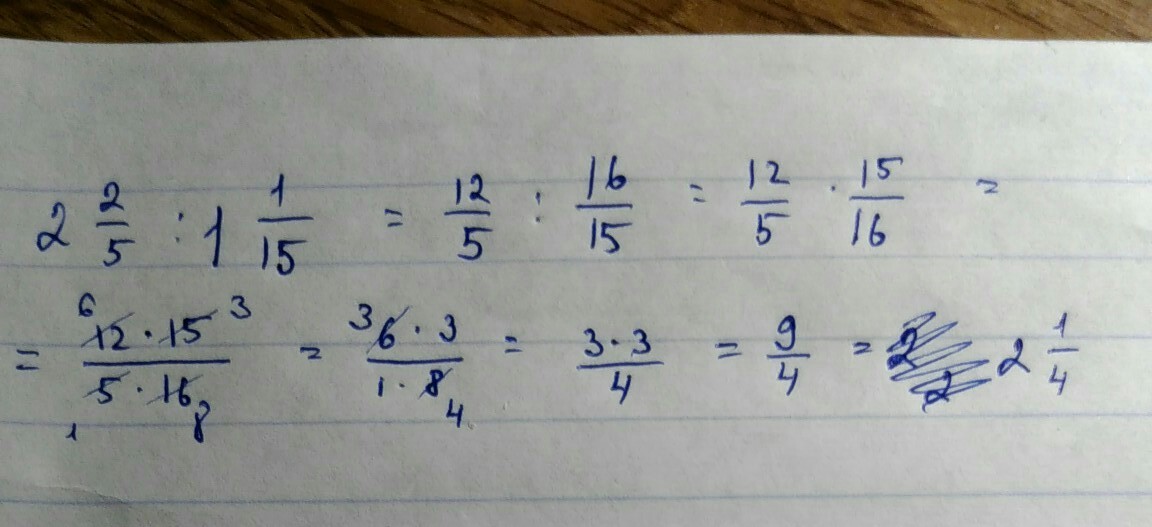 2 2/5 : 1 1/15 = 12/5 : 16/15 = 12/5 · 15/16 =
= 6 12 · 15 3 / 1 5 · 16 8 = 3 6 · 3 / 1 · 8 4 = 3 · 3 / 4 = 9/4 = 2 1/4